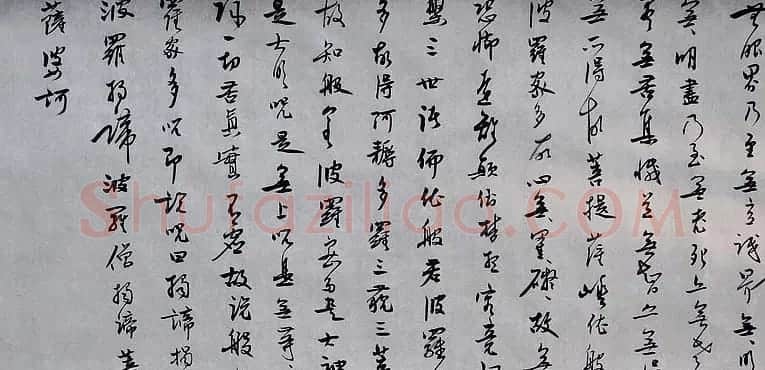 無眼界乃至無意識界無無明
無明盡乃至無老死亦無老
無苦集滅道無智亦無得
無所得故菩提薩埵依般
波羅蜜多故心無罣礙故無
恐怖遠離顛倒夢想究竟涅
槃三世諸佛依般若波羅
多故得阿耨多羅三藐三菩
故知般若波羅蜜多是大神
是大明咒是無上咒是無等
除一切苦真實不虛故說般
羅蜜多咒即說咒曰揭諦揭
波羅揭諦波羅僧揭諦菩
薩婆訶
Shufaziliao.COM